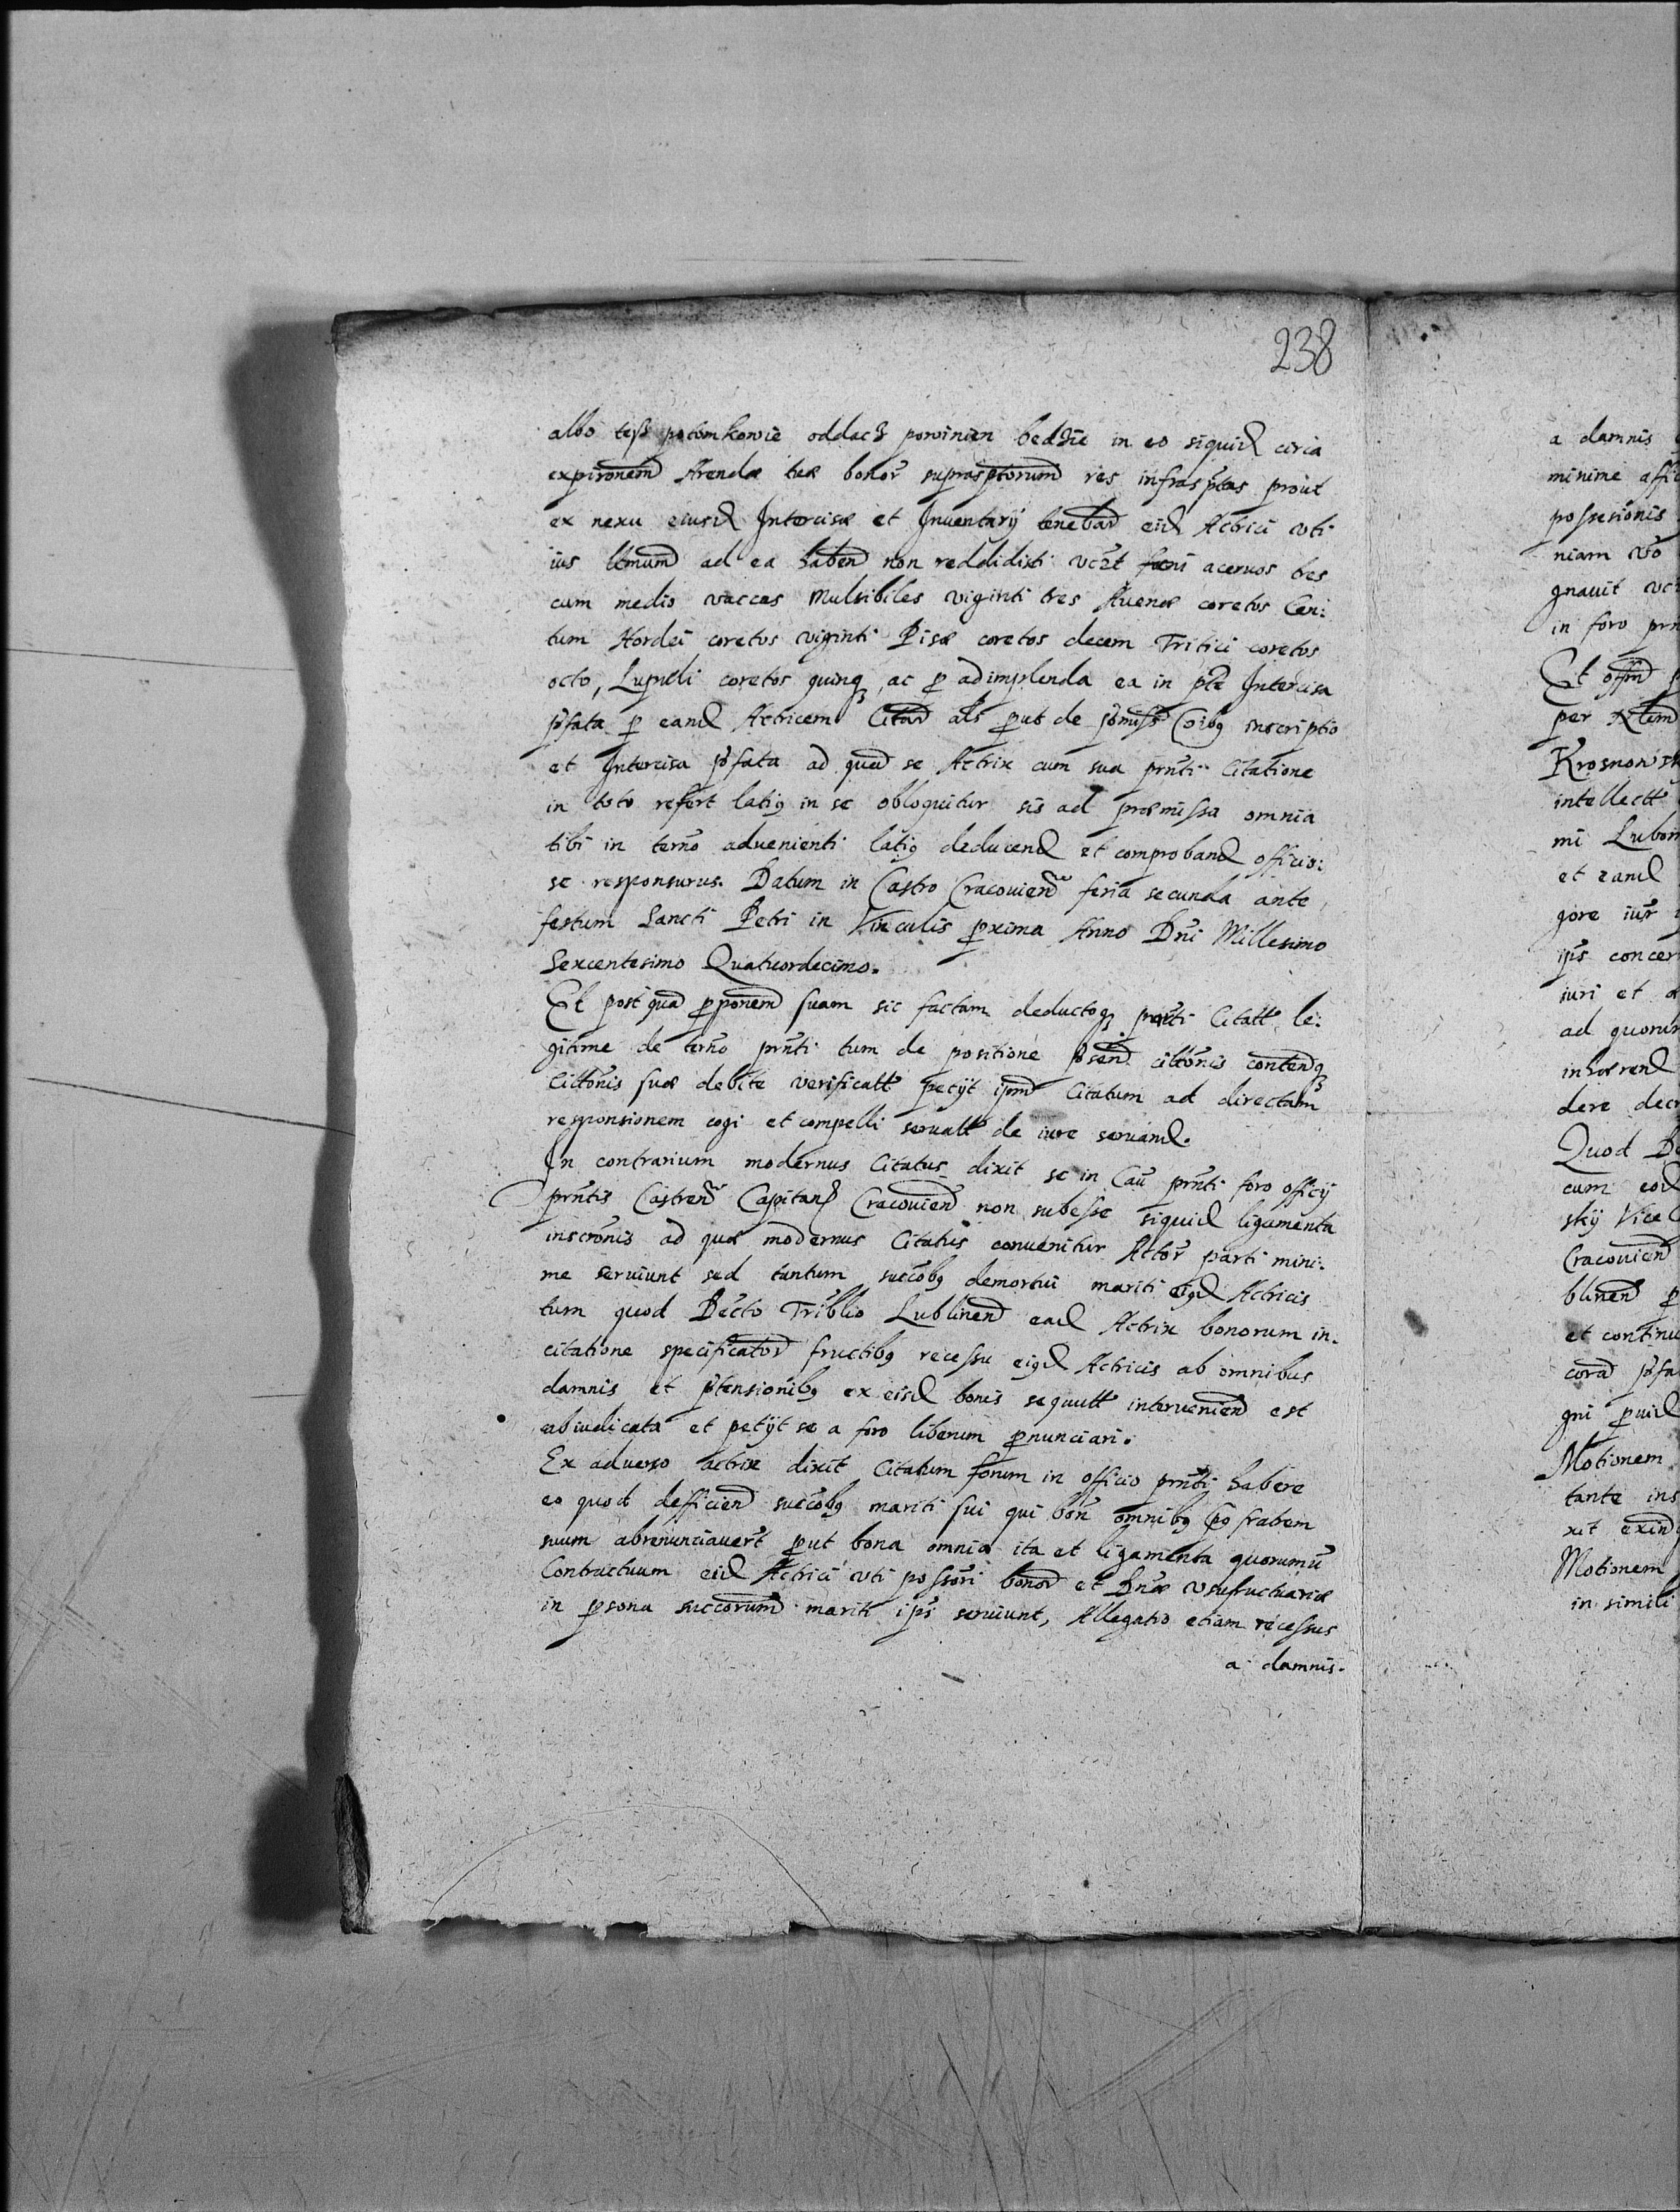 238
albo tesz potomkowie oddacz powinien bedzie in eo siquid circa
expironem Arendæ tuæ bonor suprasptorum res infrasptas prout
ex nexu eiusd Intercisæ et Inuentarij tenebar eid Actrici vti
ius ad ea haben non reddidisti vczt fæni aceruos tres
cum medio vaccas Mulsibiles viginti tres Auenæ coretos Cen:
tum Hordei coretos viginti Pisæ coretos decem Tritici coretos
octo, Lupuli coretos quinq, ac p adimplenda ea in pte Intercisa
pfata p eand Actricem Citar als put de pmiss inscriptio
et Intercisa pfata ad quam se Actrix cum sua pnti Citatione
in toto refert latiq in se obloquitur sis ad præmissa omnia
tibi in termo aduenienti latiq deducend et comproband officio:
se responsurus. Datum in Castro Cracouien feria secunda ante
festum Sancti Petri in Vinculis pxima Anno Dni Millesimo
Sexcentesimo Quatuordecimo.
Et post quam pponem suam sic factam deductoq pnti Citatt le:
gitime de termo pnti tum de positione cittonis
Cittonis suæ debite verificatt petijt ipm Citatum ad directam
responsionem cogi et compelli seruatt de iure seruand.
In contrarium modernus Citatus dixit se in Cau pnti foro officij
pntis Castren Capitan Cracouien non subesse siquid ligamenta
inscronis ad quæ modernus Citatus conuenitur Actor parti mini:
me seruiunt sed tantum succobq demortui mariti eiqd Actricis
tum quod Decto Triblio Lublinen ead Actrix bonorum in.
citatione specificator fructibq recessu eiqd Actricis ab omnibus
damnis et ptensionibq ex eisd bonis sequutt interuenien est
abiudicata et petijt se a foro liberum pnunciari.
Ex aduerso actrix dixit Citatum forum in officio pnti habere
eo quod defficien succobq mariti sui qui bon omnibq fratrem
suum abrenunciauert put bona omnia ita et ligamenta quorumu
Contractuum eid Actrici vti possori bonor et Dnæ vsufructuariæ
in psona succorum mariti ipsi seruiunt, Allegatio etiam recessus
a damnis.
a damnis
minime
possesionis
niam vo
gnauit
in foro
Et
per
intellectt
mi
et eand
gore iur
ips
iuri et
ad quorum
inhæren
dere
Quod
cum eod
skij Vice
Cracouien
blinen p
et continu
coram
gni
Motionem
tante ins
xit
Motionem
in simili